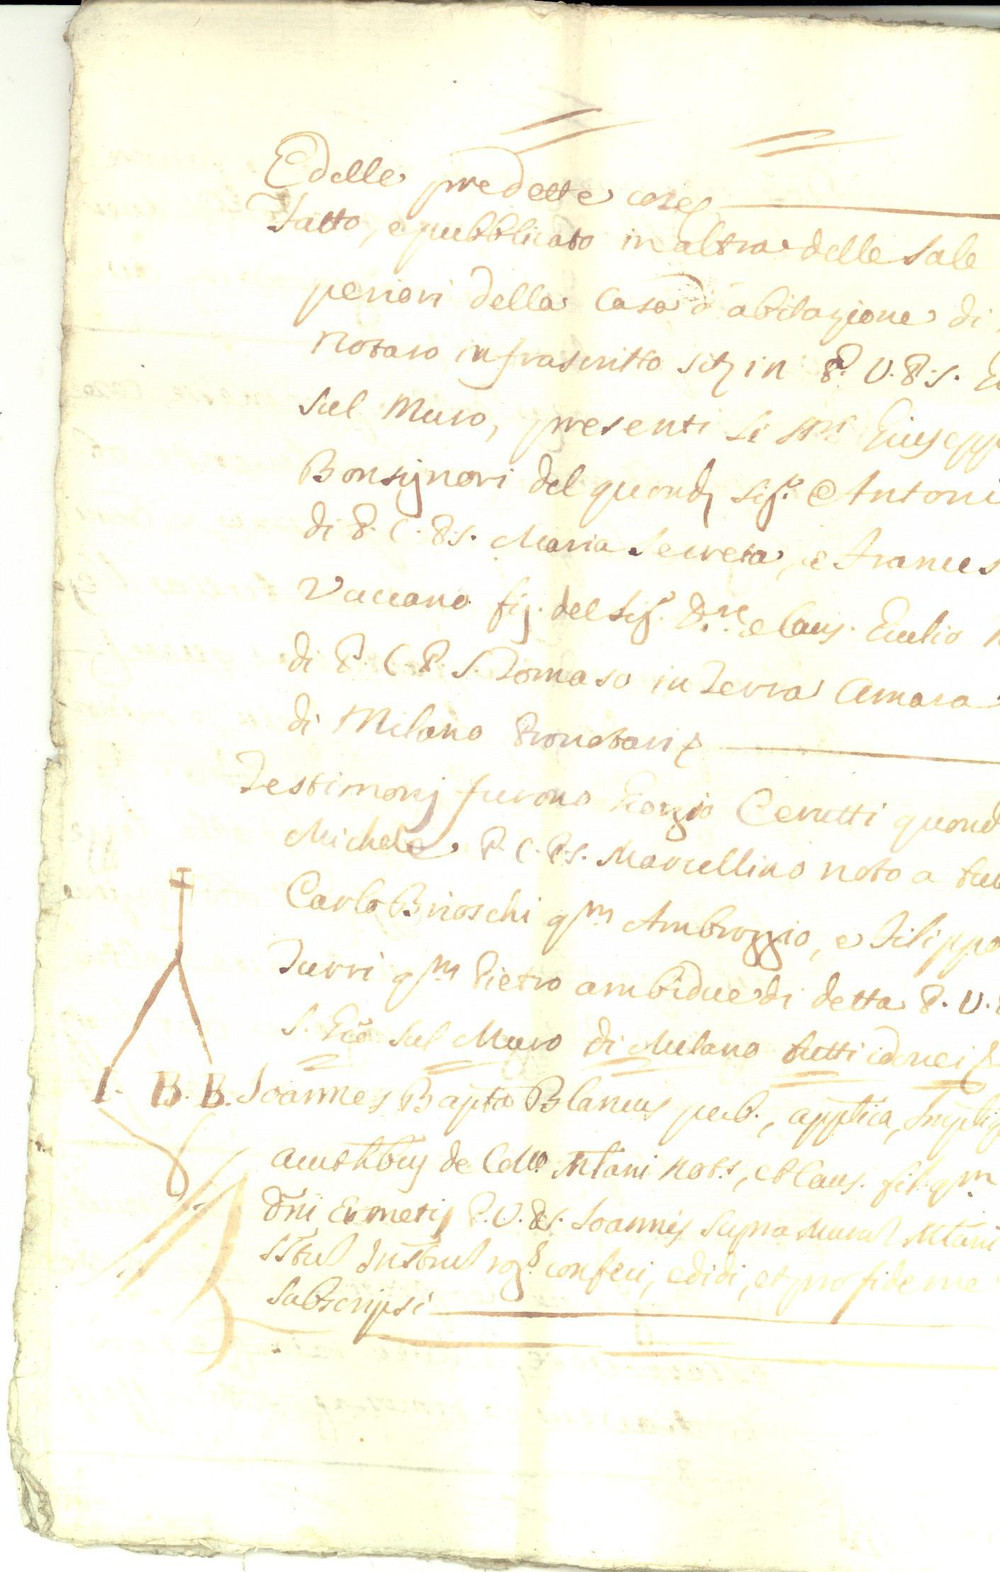 E delle predette cose
Fatto, e pubblicato in altra delle Sale
periori della Casa d'abitazione di
Notaro infrascritto sita in P. V. P. S.
sul Muro, presenti li SSri Giusepp
Bonsignori del quond. Sigr. Antoni
di P. C. P. S. Maria Secreta, e Frances
Vaccano fig. del Sigr. Dre. e Caus. Giulio
di P. C. P. S. Tomaso in Terra Amara
di Milano Pronotari
Testimonj furono Giorgio Cerutti quond
Michele P. C. P. S. Marcellino noto a
Carlo Brioschi qm Ambroggio, e Filippo
Turri qm Pietro ambidue di detta P. V.
S. Gio sul Muro di Milano tutti idonei
I. B. B. Joannes Bapta Blancus pub., applica,
de Coll. Mlani Nots., et Caus. fil. qm
Dni P. V. P. S. Joannis Supra Murum Mlani
rogs confeci, edidi, et pro fide me
Subscripsi